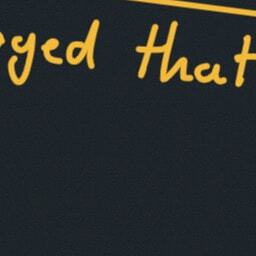 yed that